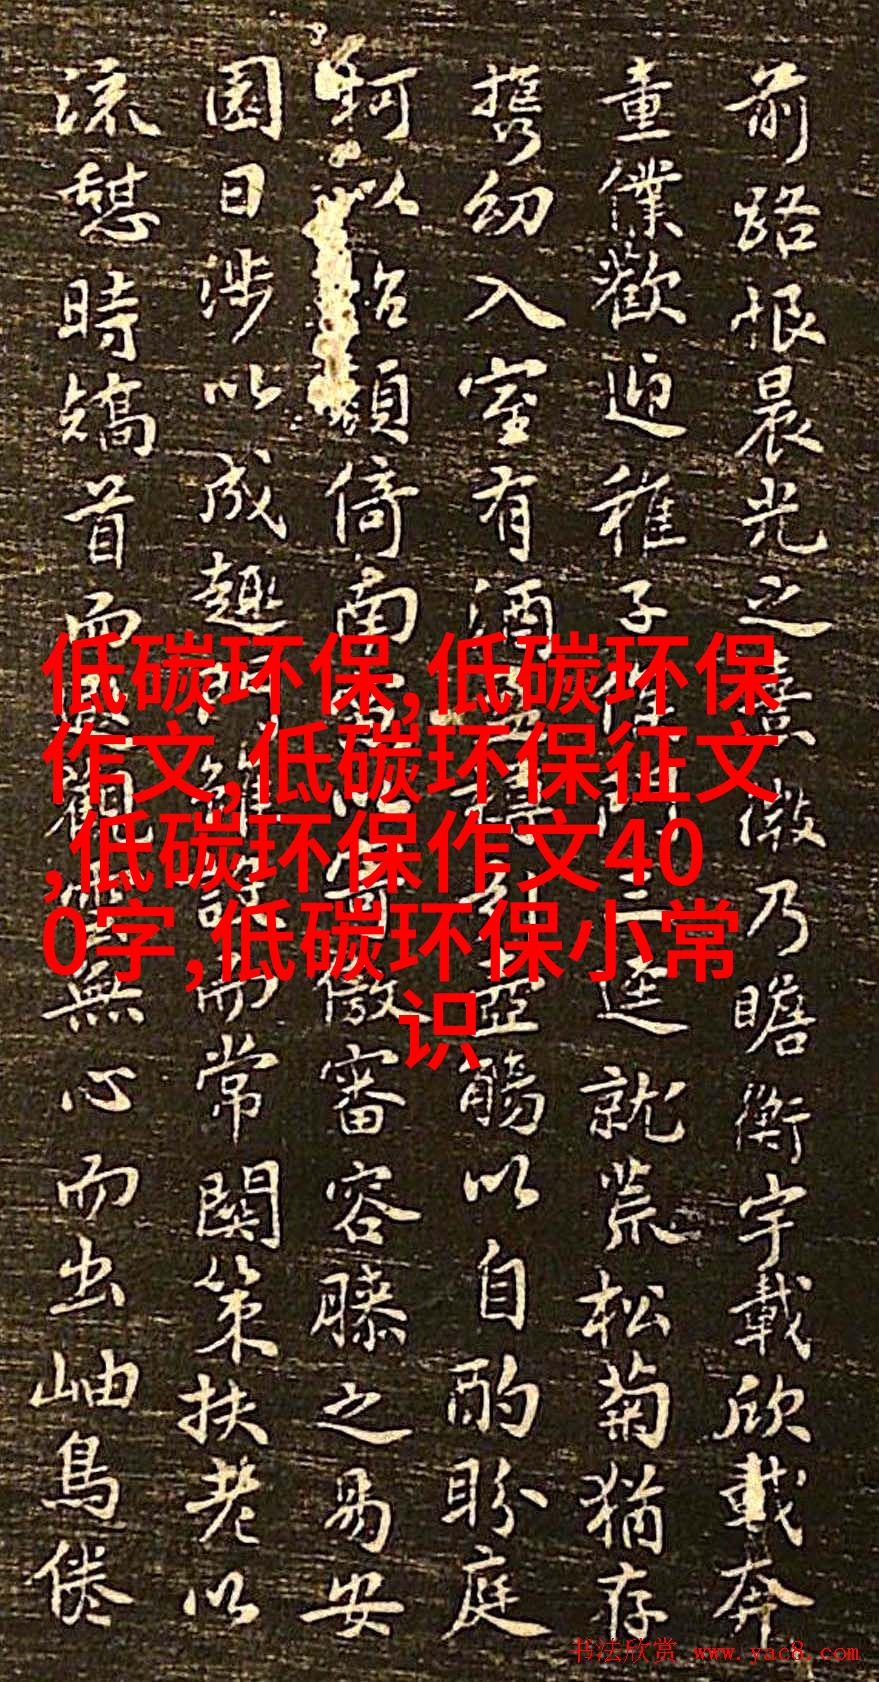 前路恨晨光之熹微乃瞻衡宇載欣載奔
童僕歡迎稚子候門三逕就荒松菊猶存
携幼入室有酒盈樽引壺觴以自酌眄庭
柯以怡顏倚南窗以寄傲審容膝之易安
園日涉以成趣門雖設而常關策扶老以
流憩時矯首而遐觀雲無心而出岫鳥倦
低碳环保,低碳环保
作文,低碳环保征文
,低碳环保作文40
0字,低碳环保小常
识
书法欣赏 www.yac8.com